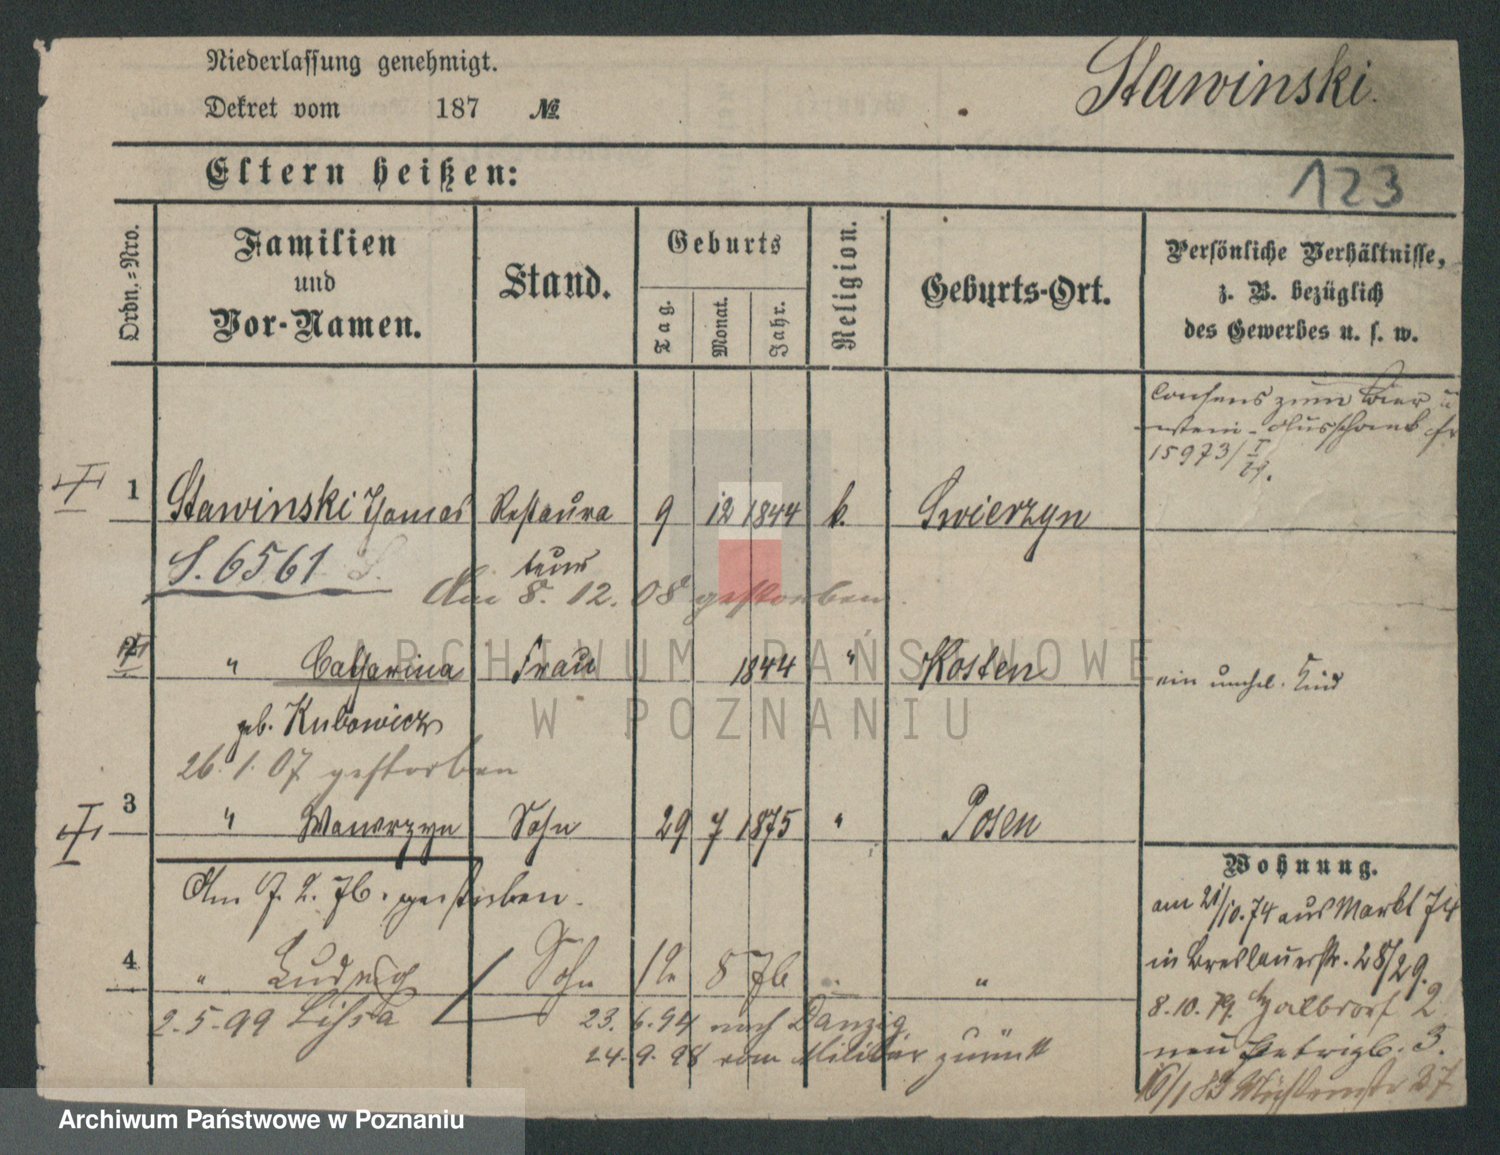 Niederlassung genehmigt.
Dekret vom 187 №
Stawinski.
Eltern heißen:
123
Ordn.-Nro.
Familien
und
Vor-Namen.
Stand.
Geburts
Tag.
Monat.
Jahr.
Religion.
Geburts-Ort.
Persönliche Verhältnisse,
z. B. bezüglich
des Gewerbes u. s. w.
Consens zum Bier u
Wein-Ausschank
15973/
1 Stawinski Thomas Restaura 9 12 1844 k. Swierzyn
teur
S. 6561
Am 8. 12. 08 gestorben.
2 " Catharina Frau 1844 " Kosten ein unehel. Kind
geb. Kubowicz
26.1.07 gestorben
3 " Wawrzyn Sohn 29 7 1875 " Posen
Am 7. 2. 76. gestorben.
4 " Ludwig Sohn 12 8 76 "
2.5.99 Lissa
23. 6. 94 nach Danzig
24.9.98 vom Militär zurück
Wohnung.
am 21/10.74 aus Markt 74
in Breslauerstr. 28/29.
8.10.79. Halbdorf 2
neu 3.
16/1 83 Mühlenstr 37
ARCHIWUM PAŃSTWOWE
W POZNANIU
Archiwum Państwowe w Poznaniu